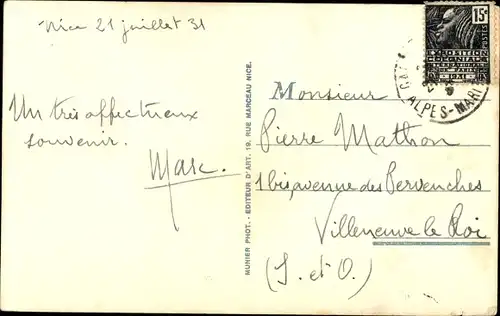 Nice 21 juillet 31
Un très affectueux
souvenir.
Marc.
MUNIER PHOT. - EDITEUR D'ART. 19, RUE MARCEAU NICE.
15c
POSTES
EXPOSITION
COLONIALE
INTERNATIONALE
DE PARIS
1931
ALPES-MARI
Monsieur
Pierre Mathon
1 bis, avenue des Pervenches
Villeneuve le Roi
(S. et O.)